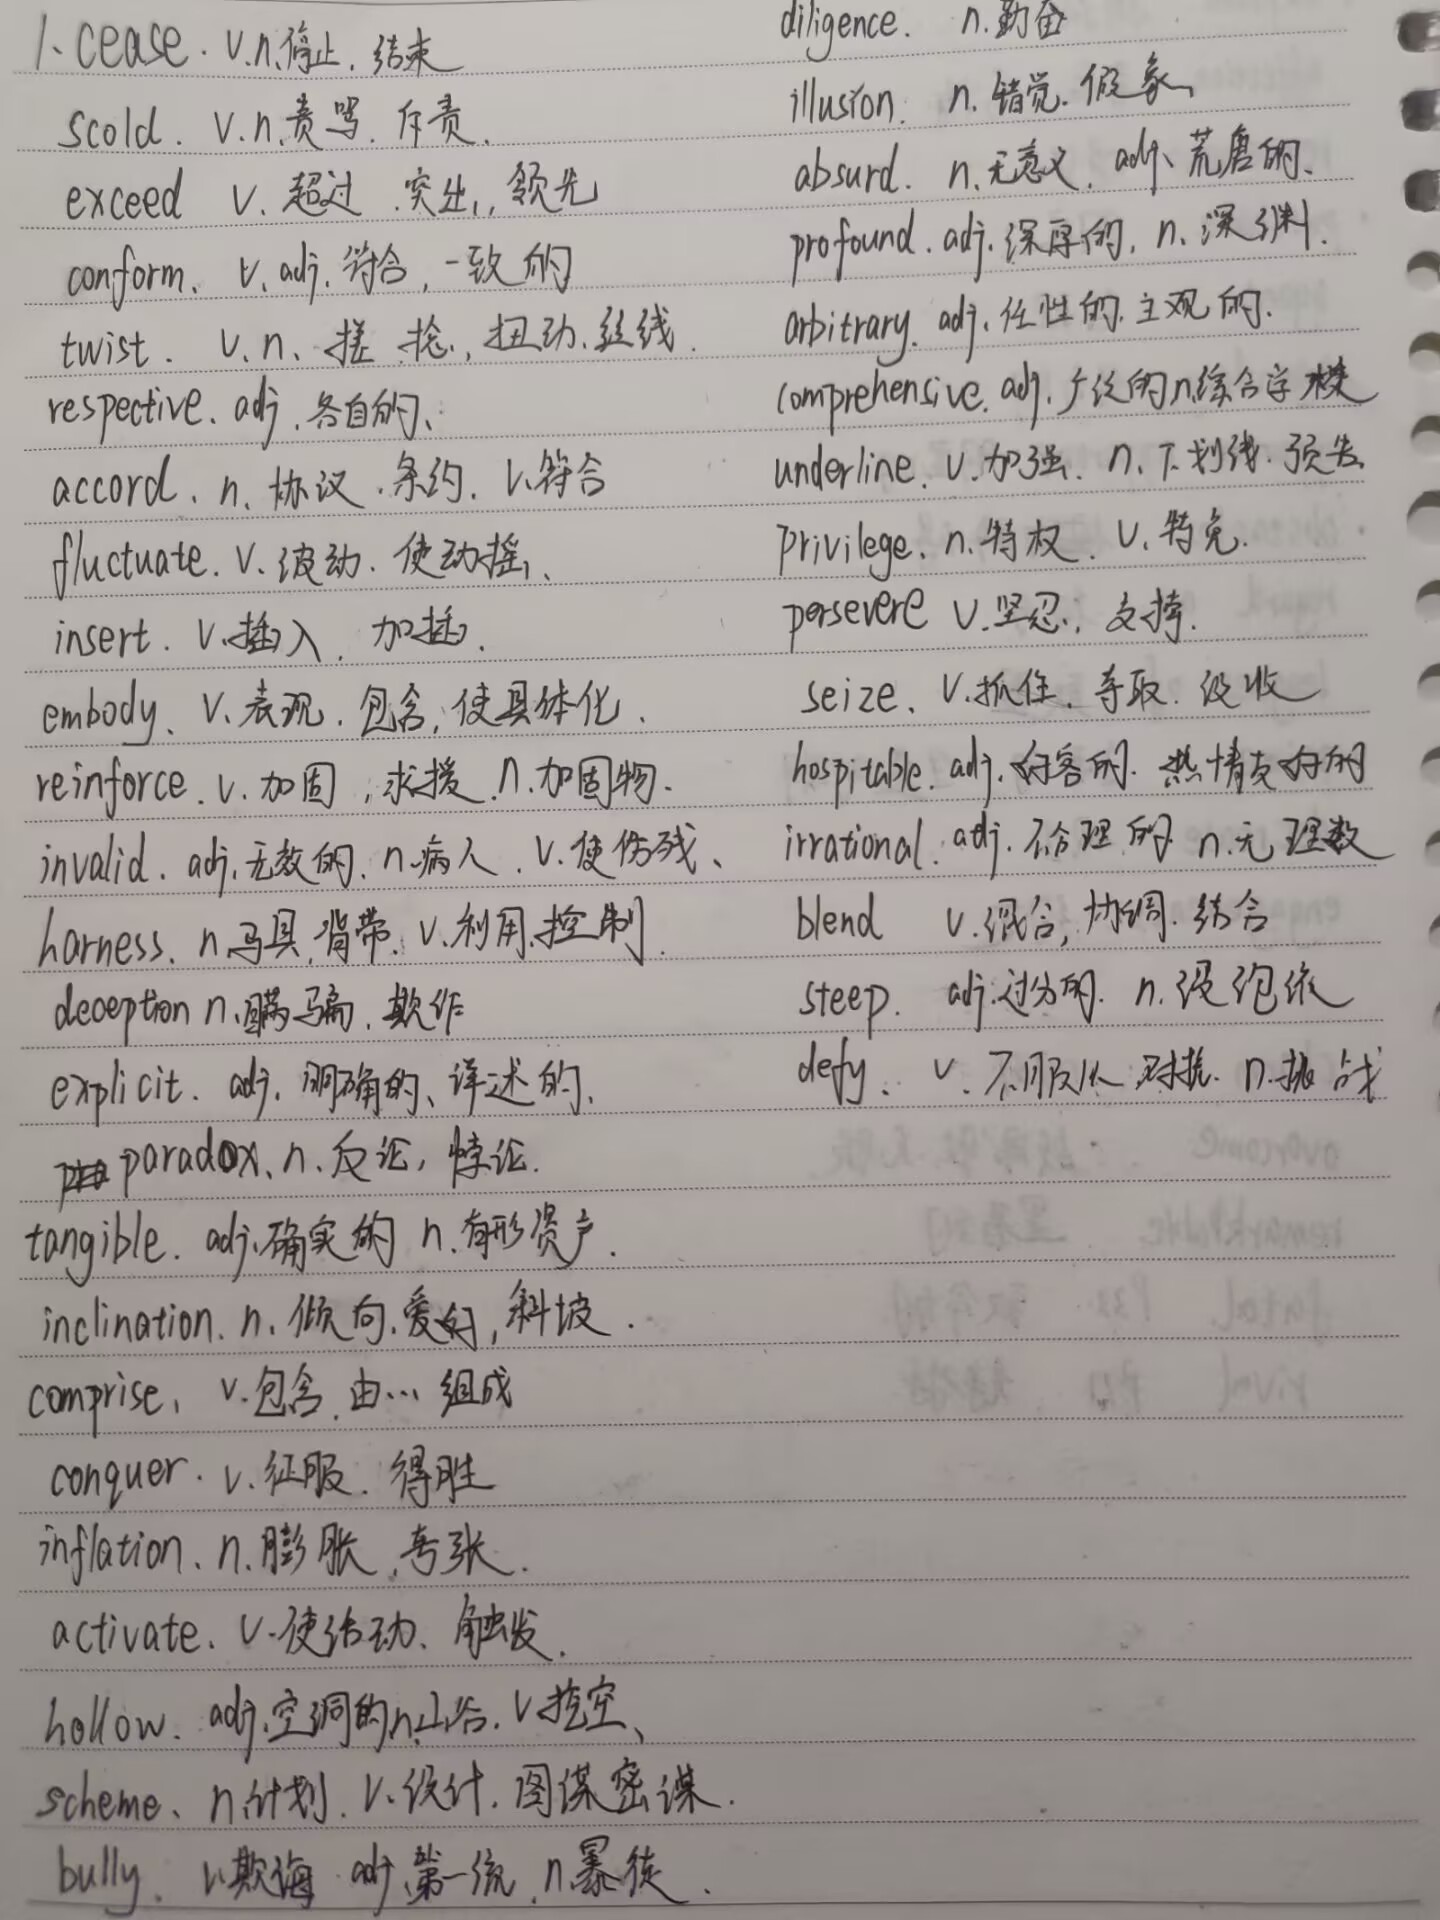 1、cease. v.n.停止. 结束
scold. v.n.责骂. 斥责.
exceed v. 超过. 突出, 领先
conform、v.adj.符合, 一致的
twist. v.n、搓.捻., 扭动.丝线.
respective. adj.各自的、
accord. n. 协议.条约. v.符合
fluctuate. v.波动. 使动摇、
insert. v.插入. 加插.
embody、v.表现.包含,使具体化.
reinforce. v.加固, 求援.n.加固物.
invalid. adj.无效的. n.病人. v.使伤残、
harness. n.马具.背带. v.利用.控制.
deception n.瞒骗. 欺诈
explicit. adj.明确的、详述的、
paradox、n.反论, 悖论.
tangible. adj.确实的 n.有形资产.
inclination. n.倾向.爱好,斜坡.
comprise, v.包含.由…组成
conquer. v.征服. 得胜
inflation、n.膨胀. 夸张.
activate. v.使活动、触发.
hollow. adj.空洞的n.山谷. v.挖空、
scheme、n.计划. v.设计. 图谋密谋.
bully. v.欺侮 adj.第一流. n.暴徒.
diligence. n.勤奋
illusion. n.错觉. 假象、
absurd. n.无意义. adj、荒唐的、
profound. adj.深厚的. n.深渊.
arbitrary. adj.任性的.主观的.
comprehensive. adj.广泛的n.综合学校
underline. v.加强. n.下划线.预告.
privilege. n.特权. v.特免.
persevere v.坚忍; 支持.
seize、v.抓住. 夺取. 没收
hospitable. adj.好客的. 热情友好的
irrational. adj.不合理的 n.无理数
blend v.混合, 协调. 结合
steep. adj.过分的. n.浸泡液
defy、v.不服从.对抗. n.挑战